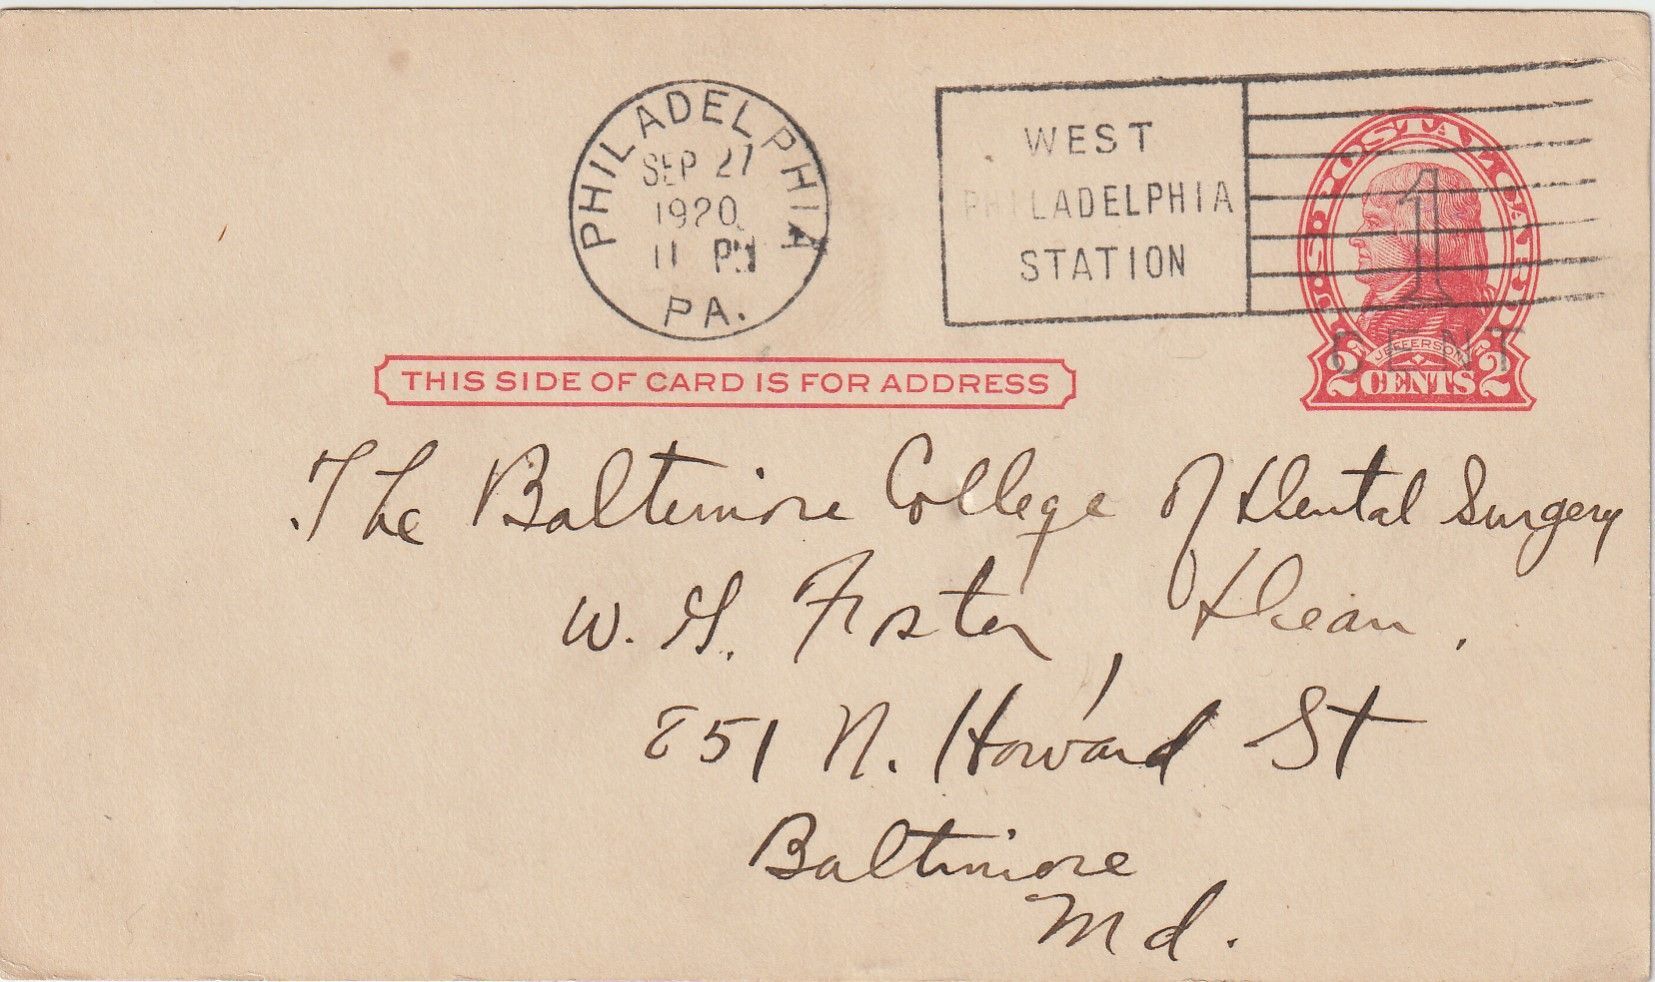 PHILADELPHIA
SEP 27
1920
11 PM
PA.
WEST
PHILADELPHIA
STATION
U.S. POSTAL CARD
1
CENT
JEFFERSON
2 CENTS 2
THIS SIDE OF CARD IS FOR ADDRESS
The Baltimore College of Dental Surgery
W. G. Foster, Dean.
851 N. Howard St
Baltimore
Md.